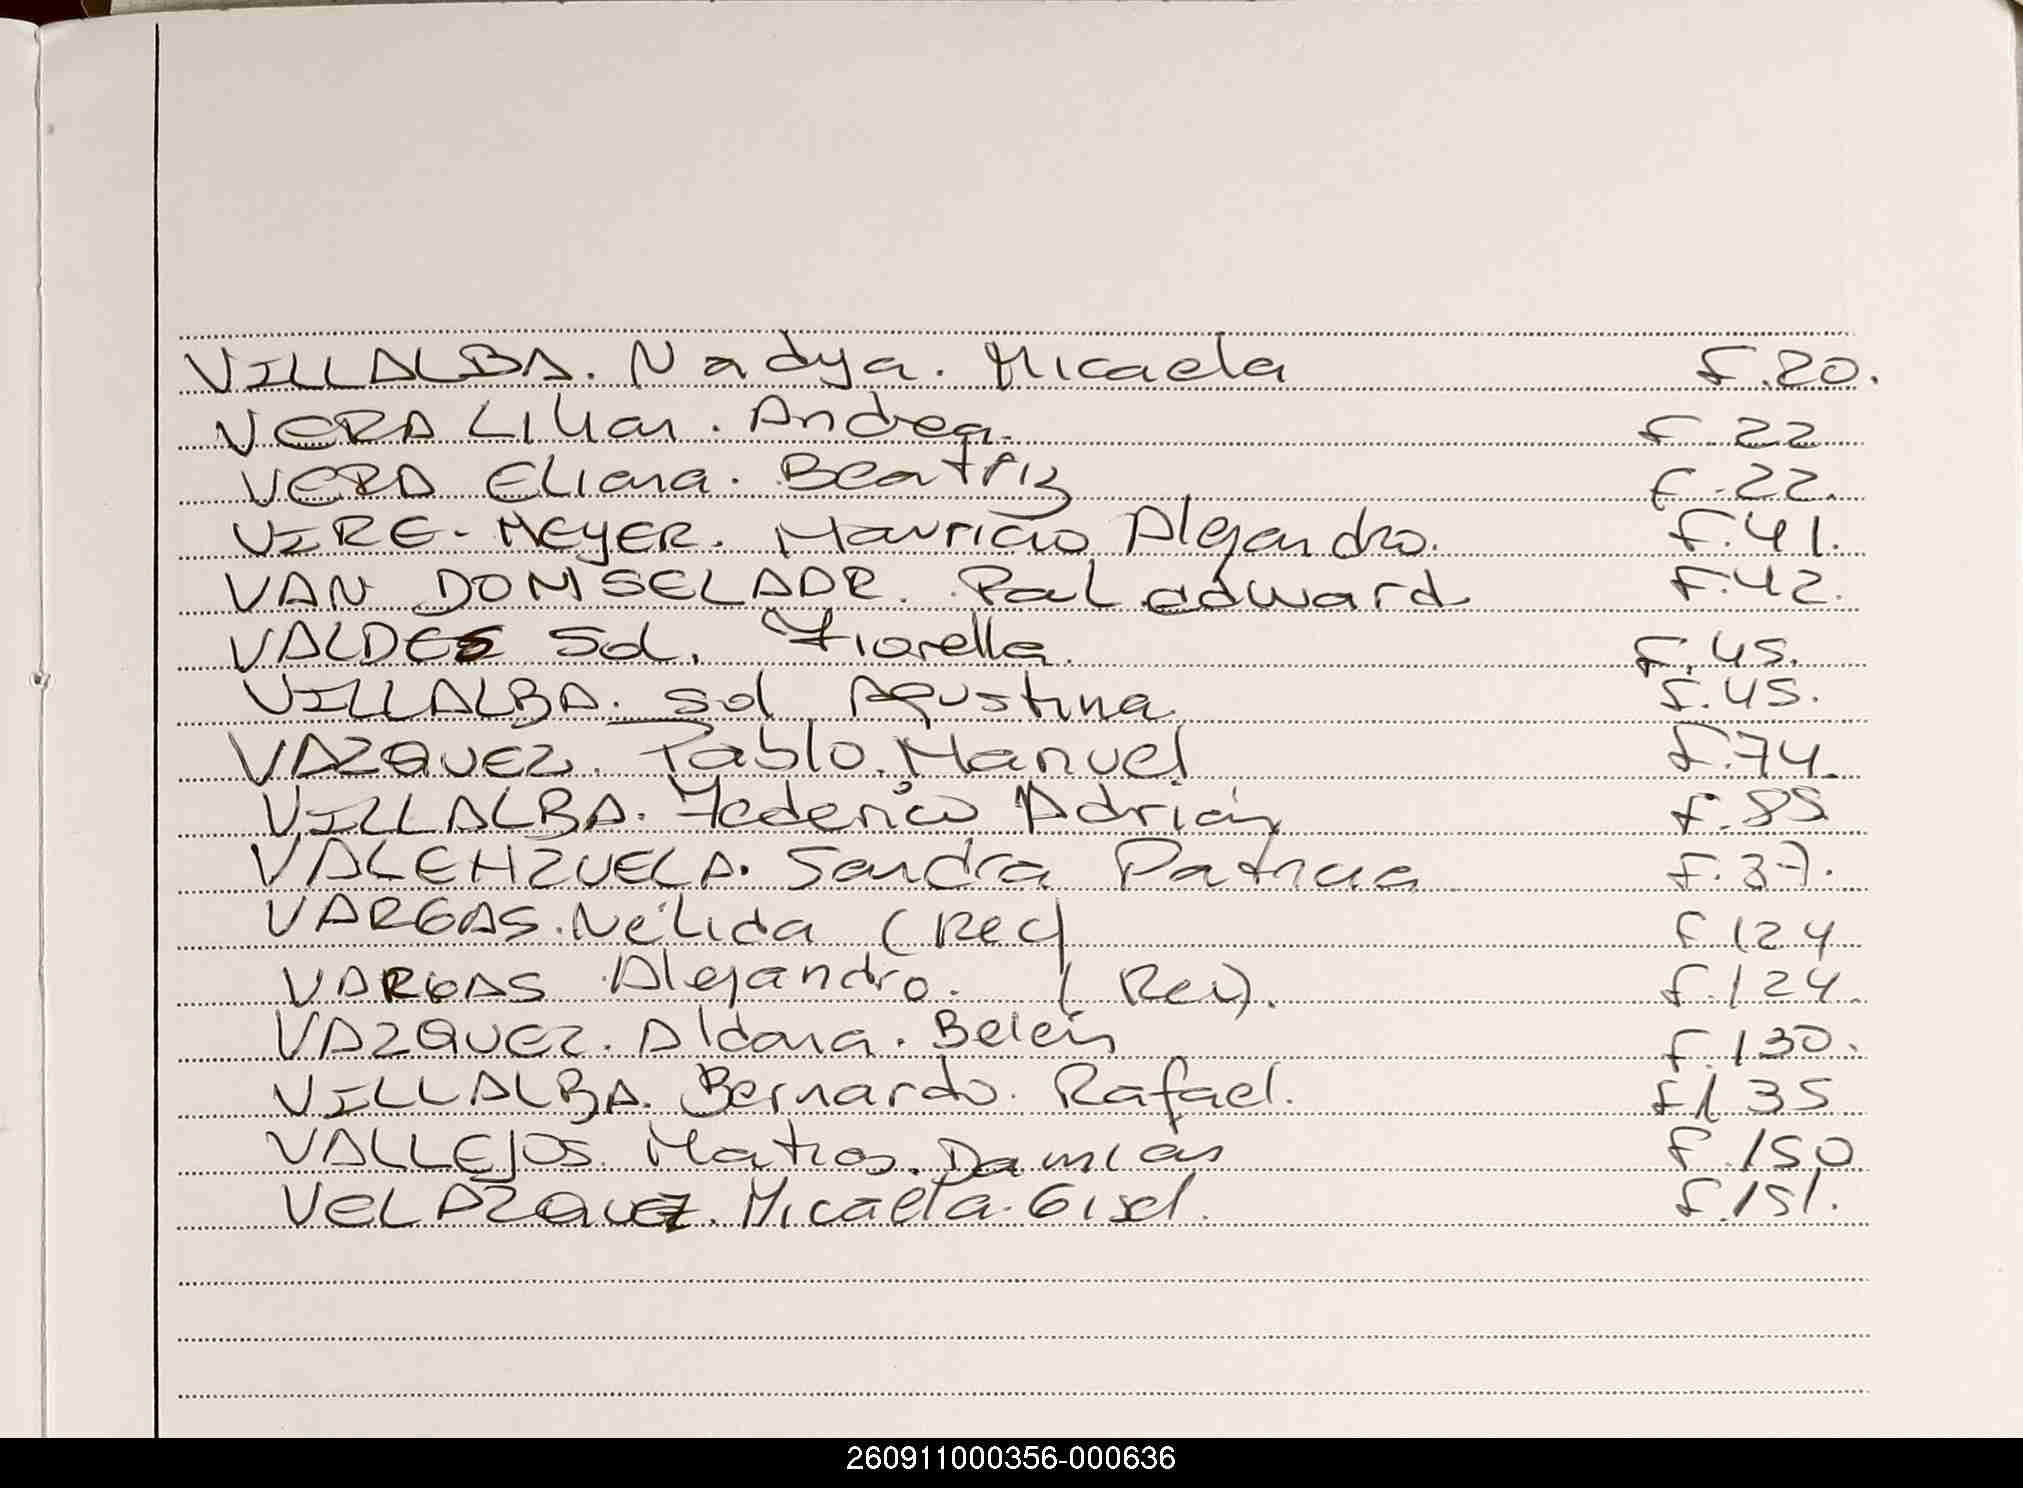 VILLALBA. Nadya. Micaela f.20.
VERA Lilian. Andrea. f.22
VERA Eliana. Beatriz f.22.
VIRE-MEYER. Mauricio Alejandro. f.41.
VAN DOMSELAAR. Pal edward f.42.
VALDES Sol. Fiorella. f.45.
VILLALBA. Sol Agustina. f.45.
VAZQUEZ. Pablo. Manuel f.74.
VILLALBA. Federico Adrián f.85
VALENZUELA. Sandra Patricia f.37.
VARGAS. Nélida (Rec) f 124
VARGAS Alejandro. (Rec). f.124.
VAZQUEZ. Aldana. Belén f.130.
VILLALBA. Bernardo. Rafael. f 135
VALLEJOS. Matias. Damián f.150
VELAZQUEZ. Micaela. Gisel. f.151.
260911000356-000636